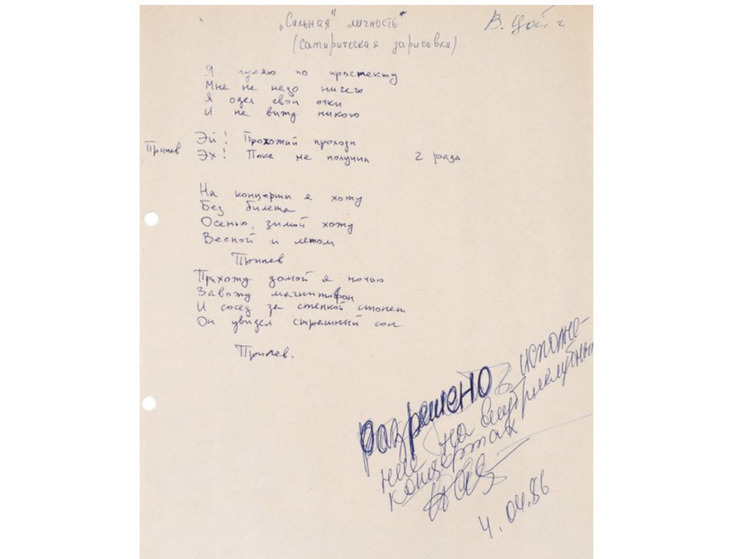 В. Цой
„Сильная" личность
(сатирическая зарисовка)
Я гуляю по проспекту
Мне не надо ничего
Я одел свои очки
И не вижу никого
Эй! Прохожий проходи
Припев Эх! Пока не получил 2 раза
На концерты я хожу
Без билета
Осенью, зимой хожу
Весной и летом
Припев
Прихожу домой я ночью
Завожу магнитофон
И сосед за стенкой стонет
Он увидел страшный сон
Припев.
разрешено исполне-
ние на внутриклубных
концертах
4.04.86